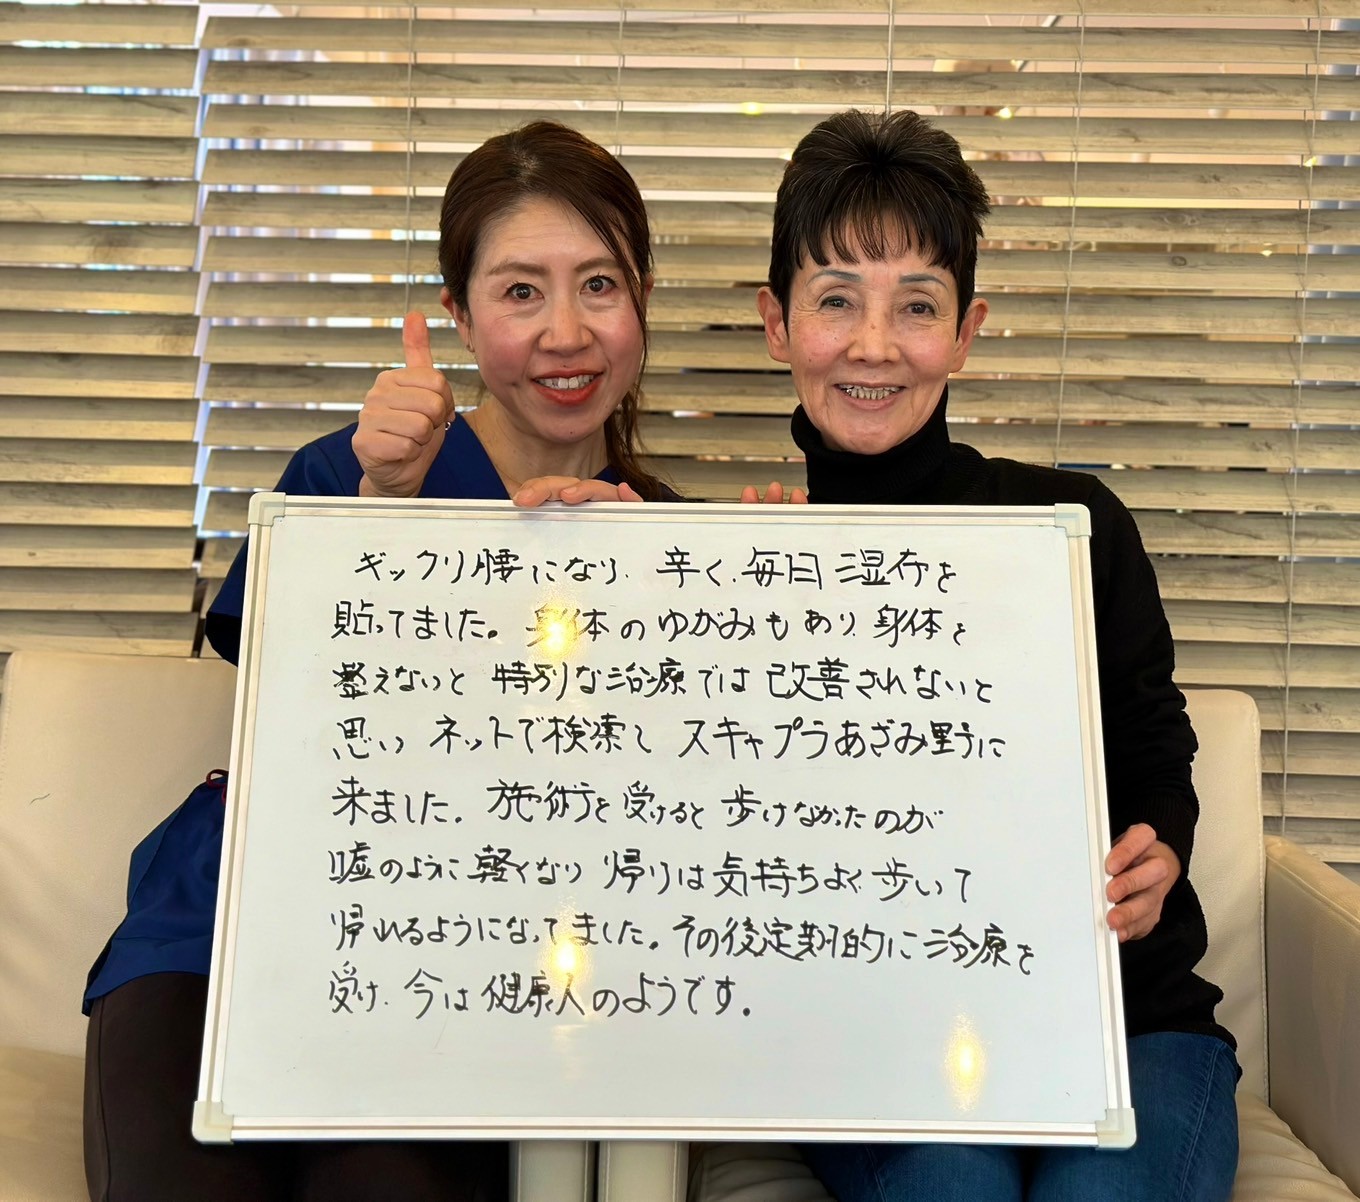 ギックリ腰になり、辛く、毎日湿布を
貼ってました。身体のゆがみもあり、身体を
整えないと特別な治療では改善されないと
思いネットで検索しスキャプラあざみ野に
来ました。施術を受けると歩けなかったのが
嘘のように軽くなり帰りは気持ちよく歩いて
帰れるようになってました。その後定期的に治療を
受け、今は健康人のようです。